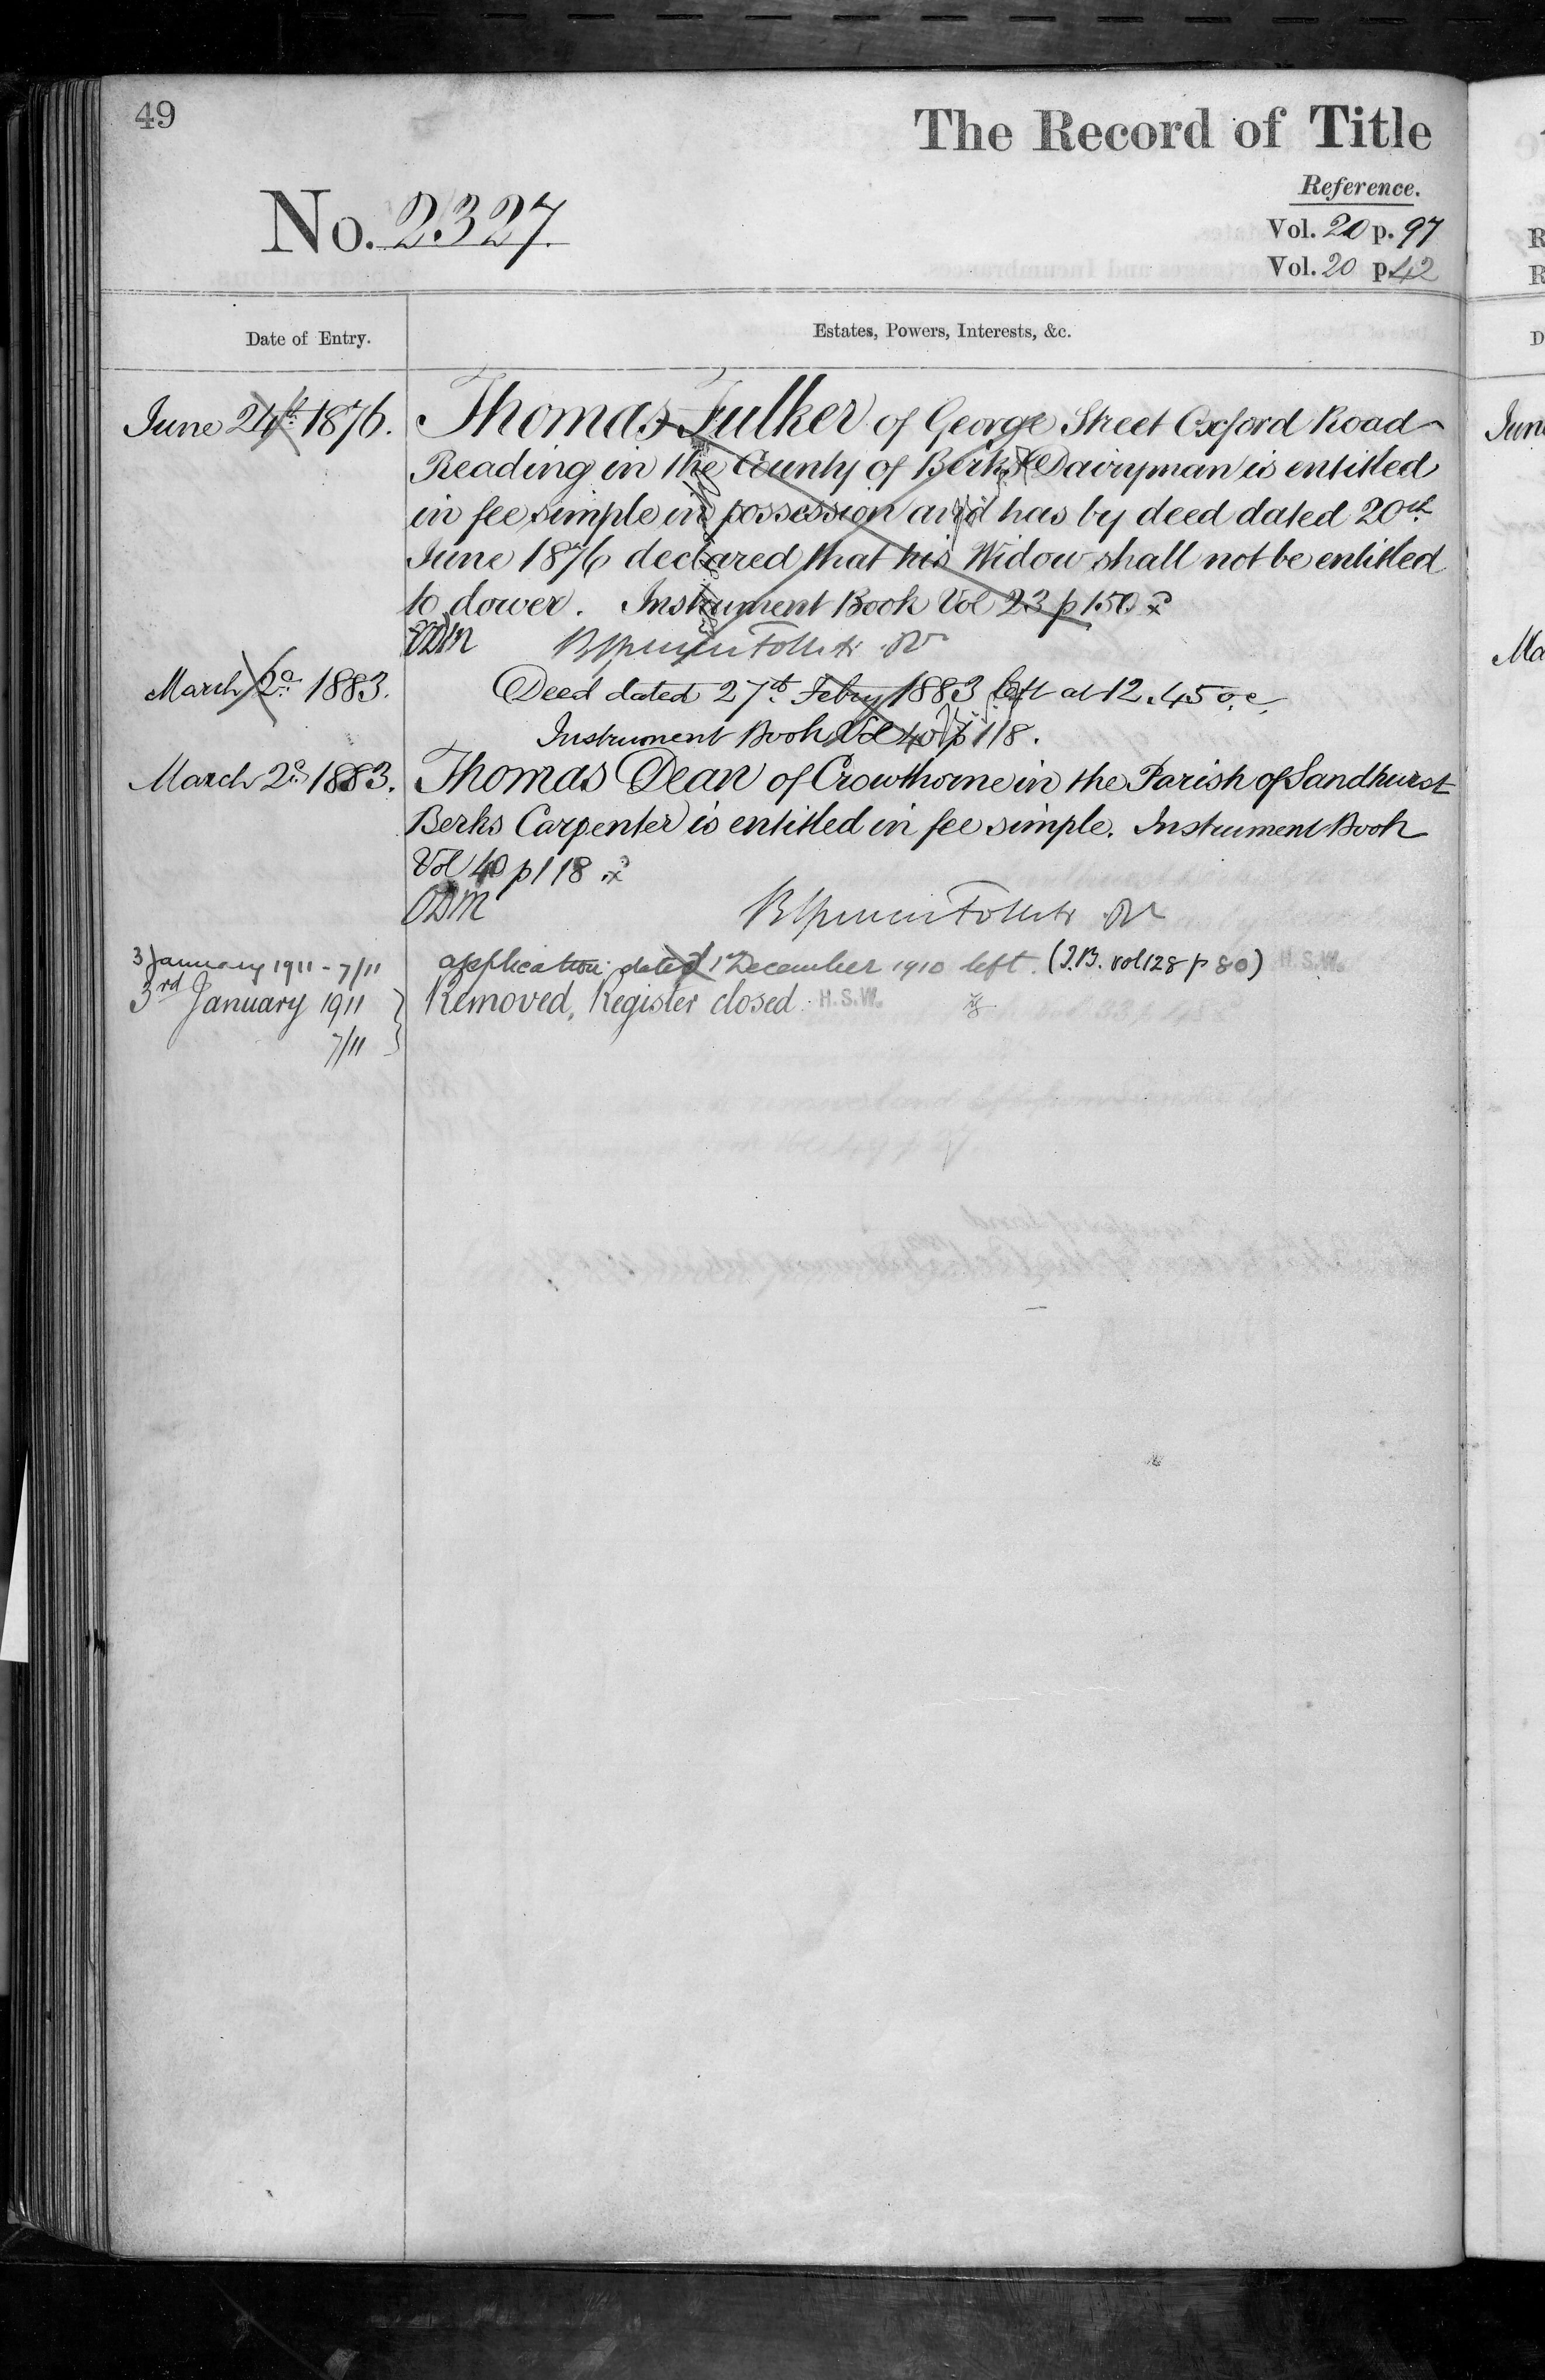 49
The Record of Title
Reference.
No. 2327.
Vol. 20 p. 97
Vol. 20 p. 42
Date of Entry.
Estates, Powers, Interests, &c.
June 24th 1876. Thomas Fulker of George Street Oxford Road
Reading in the County of Berks Dairyman is entitled
in fee simple in possession and has by deed dated 20th
June 1876 declared that his Widow shall not be entitled
to dower. Instrument Book Vol 23 p 150
March 2d 1883. Deed dated 27th Febry 1883 left at 12.45 o.c.
Instrument Book Vol 40 p 118.
March 2d 1883. Thomas Dean of Crowthorne in the Parish of Sandhurst
Berks Carpenter is entitled in fee simple. Instrument Book
Vol 40 p 118
3 January 1911 - 7/11 application dated 1st December 1910 left. (I.B. vol 128 p 80) H.S.W.
3rd January 1911 Removed, Register closed. H.S.W.
7/11
R
R
D
June
Ma